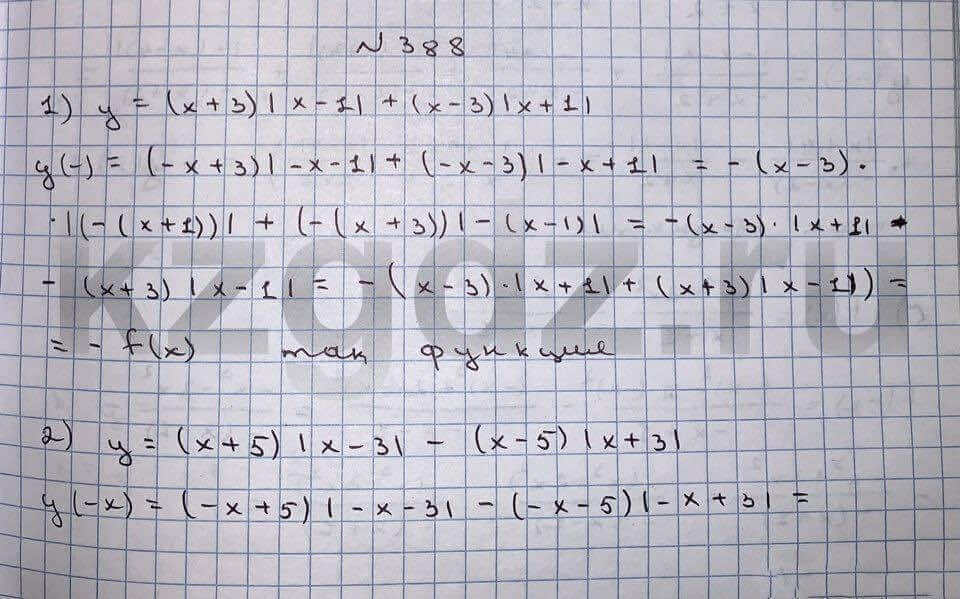 N 388
1) y = (x+3)|x-1| + (x-3)|x+1|
y(-) = (-x+3)|-x-1| + (-x-3)|-x+1| = -(x-3)·
·|(-(x+1))| + (-(x+3))|-(x-1)| = -(x-3)·|x+1| -
- (x+3)|x-1| = -(x-3)·|x+1| + (x+3)|x-1|) =
= - f(x) так функцие
2) y = (x+5)|x-3| - (x-5)|x+3|
y(-x) = (-x+5)|-x-3| - (-x-5)|-x+3| =
kzgdz.ru